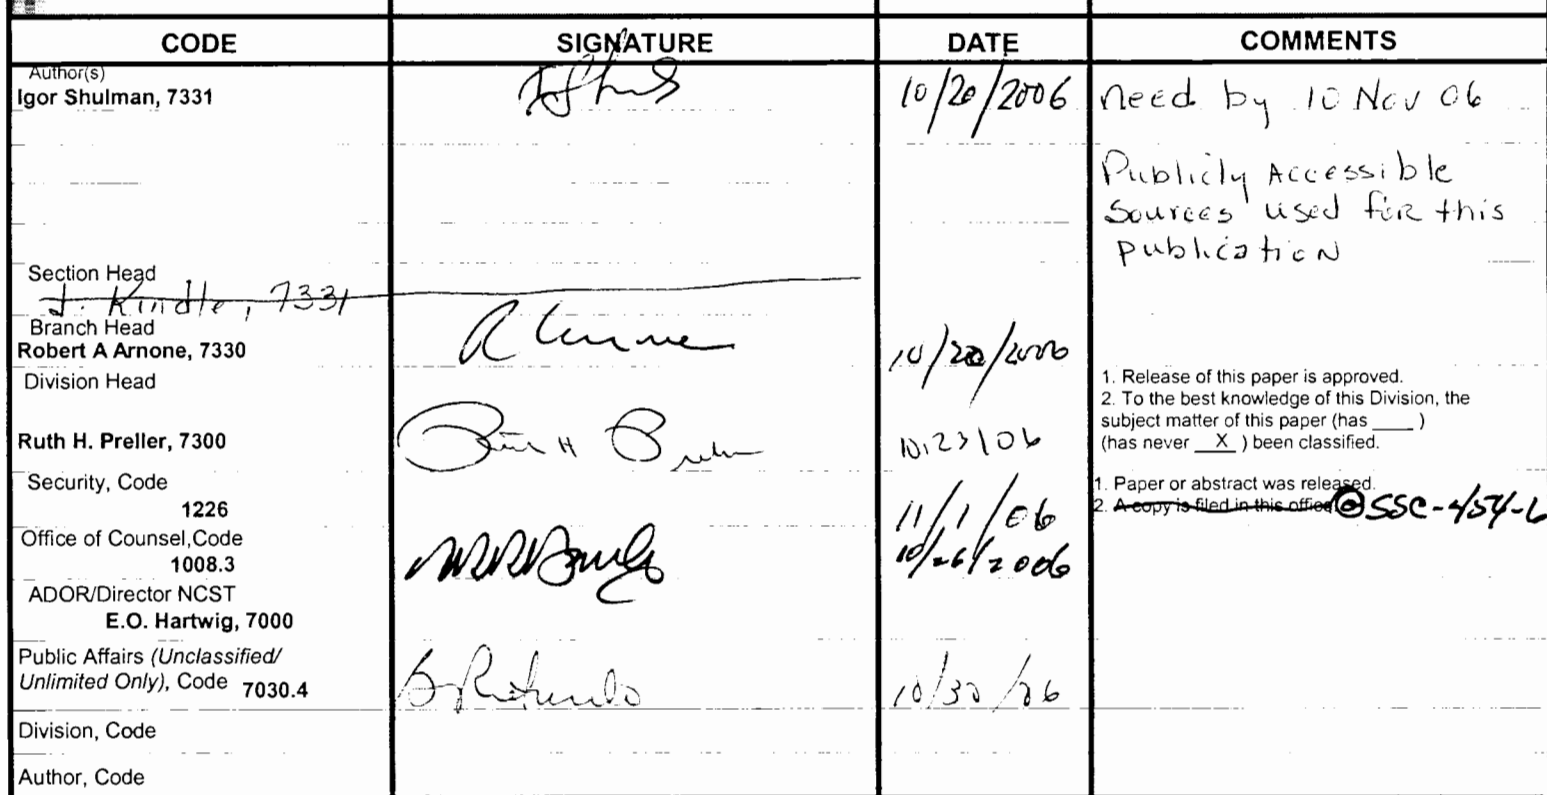 CODE SIGNATURE DATE COMMENTS
Author(s)
Igor Shulman, 7331 10/20/2006 need by 10 Nov 06
Publicly Accessible
Sources used for this
publication
Section Head
J. Kindle, 7331
Branch Head
Robert A Arnone, 7330 10/20/2006
Division Head 1. Release of this paper is approved.
2. To the best knowledge of this Division, the
subject matter of this paper (has ____ )
Ruth H. Preller, 7300 Ruth H Preller 10/23/06 (has never X ) been classified.
Security, Code 1. Paper or abstract was released.
1226 11/1/06 2. A copy is filed in this office
Office of Counsel,Code
1008.3 10/26/2006
ADOR/Director NCST
E.O. Hartwig, 7000
Public Affairs (Unclassified/
Unlimited Only), Code 7030.4 10/30/06
Division, Code
Author, Code